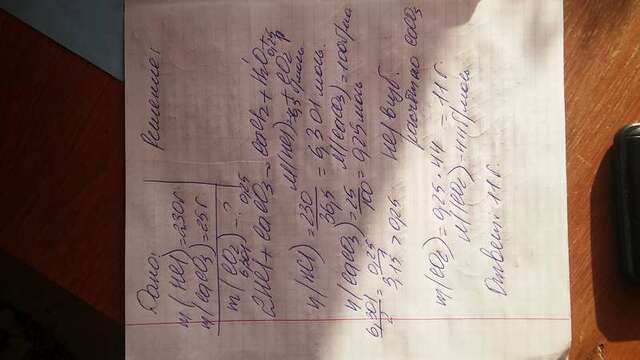 Дано:
Решение:
m(HCl)=230г.
m(CaCO3)=25г
m(CO2) - ?
6,301 0,25
2HCl + CaCO3 → CaCl2 + H2O +
0,25
+ CO2↑
M(HCl)=36,5 г/моль
n(HCl) = 230/36,5 = 6,301 моль.
M(CaCO3)=100г/моль
n(CaCO3) = 25/100 = 0,25 моль
6,301/2 = 0,25/1
3,15 > 0,25
HCl в изб.
расчёт по CaCO3
m(CO2) = 0,25 · 44 = 11 г.
M(CO2) = 44г/моль
Ответ: 11 г.